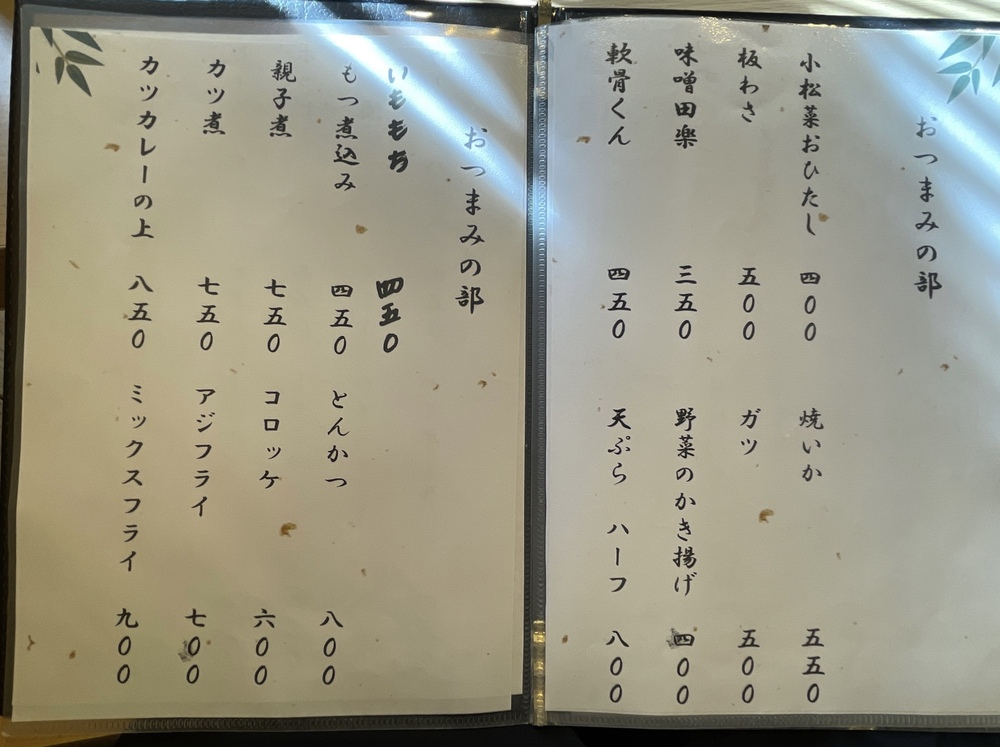 おつまみの部
小松菜おひたし 四〇〇
焼いか 五五〇
板わさ 五〇〇
ガツ 五〇〇
味噌田楽 三五〇
野菜のかき揚げ 四〇〇
軟骨くん 四五〇
天ぷら ハーフ 八〇〇
おつまみの部
いももち 四五〇
もつ煮込み 四五〇
とんかつ 八〇〇
親子煮 七五〇
コロッケ 六〇〇
カツ煮 七五〇
アジフライ 七〇〇
カツカレーの上 八五〇
ミックスフライ 九〇〇